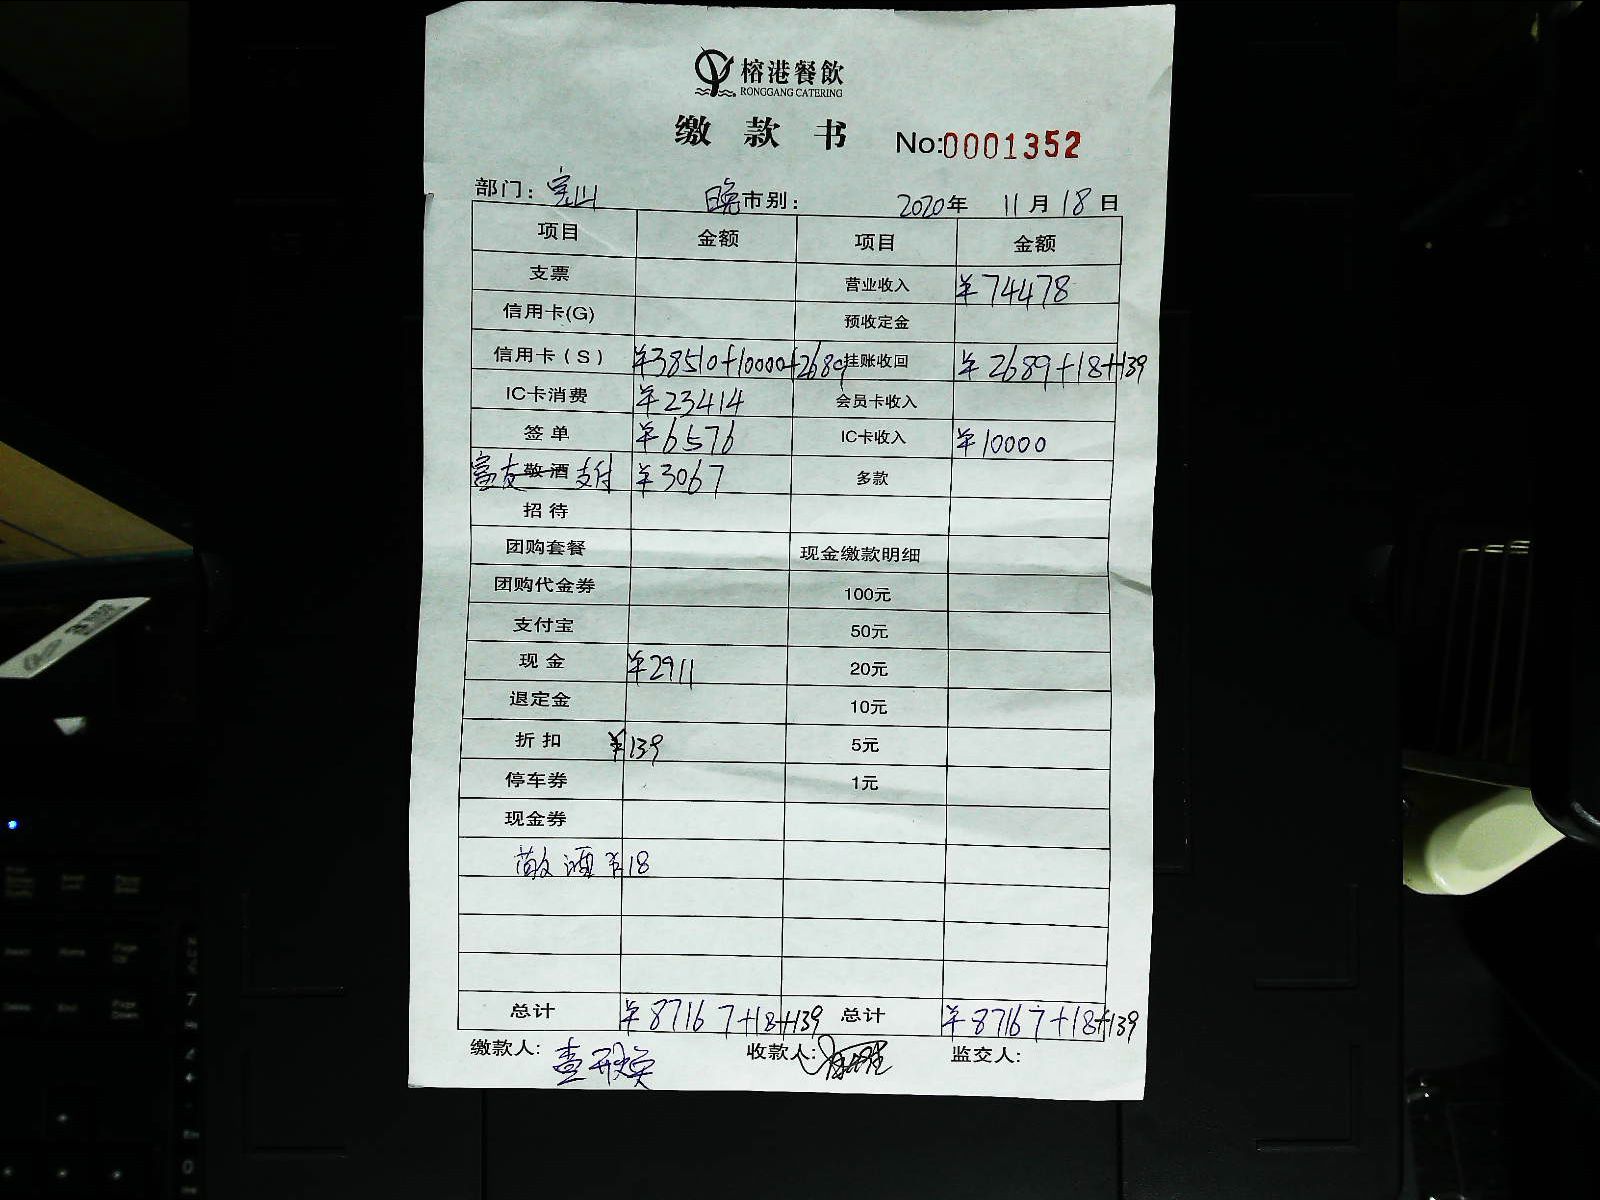 榕港餐飲
RONGGANG CATERING
缴款书 No:0001352
部门: 宝山 晚市别: 2020年 11月18日
项目 金额 项目 金额
支票 营业收入 ¥74478
信用卡(G) 预收定金
信用卡(S) ¥38510+10000+2689 挂账收回 ¥2689+18+139
IC卡消费 ¥23414 会员卡收入
签单 ¥6576 IC卡收入 ¥10000
富友敬酒支付 ¥3067 多款
招待
团购套餐 现金缴款明细
团购代金券 100元
支付宝 50元
现金 ¥2911 20元
退定金 10元
折扣 ¥139 5元
停车券 1元
现金券
敬酒 ¥18
总计 ¥87167+18+139 总计 ¥87167+18+139
缴款人: 收款人: 监交人: